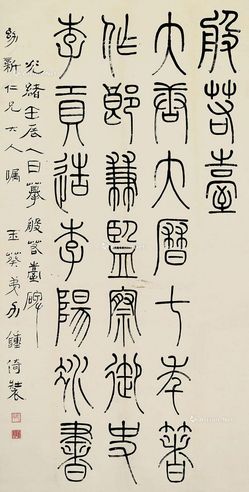 般若臺
大唐大曆七年著
作郎兼監察御史
李貢造李陽冰書
光緒壬辰人日摹般若臺碑
新仁兄大人囑 玉葵弟力鍾倚裝